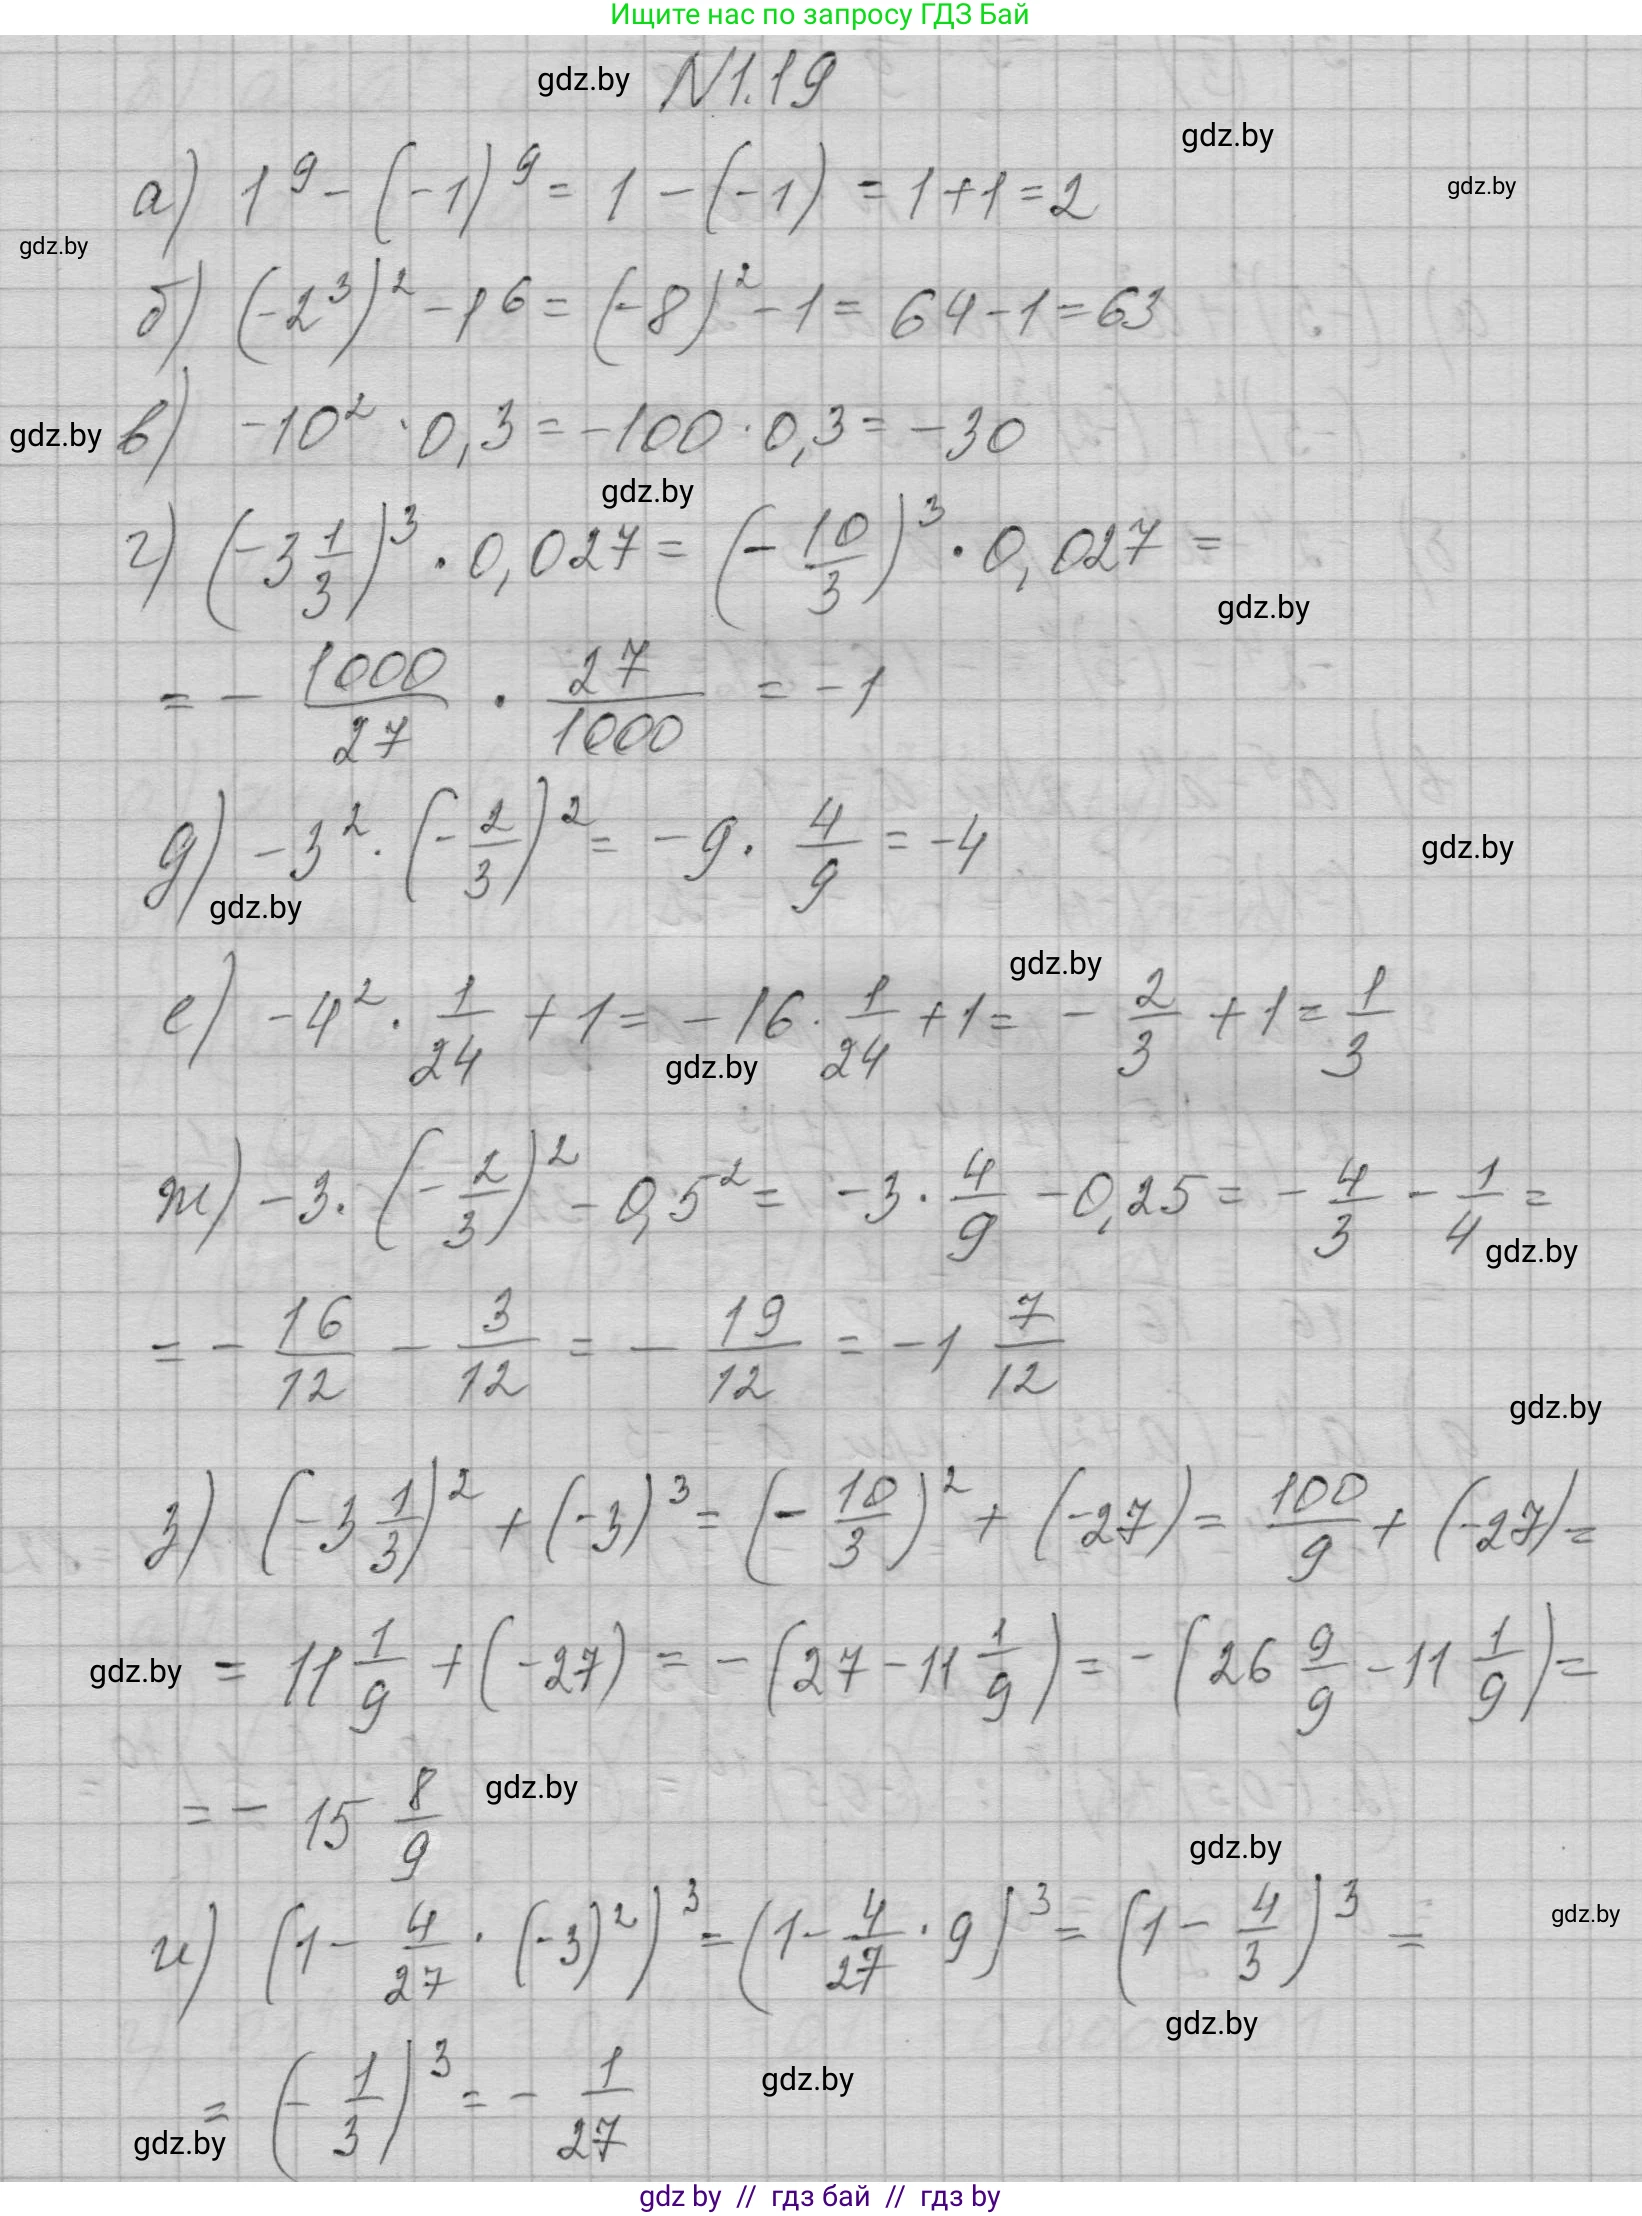 Ищите нас по запросу ГДЗ Бай
gdz.by N1.19
gdz.by
gdz.by
а) 1⁹ - (-1)⁹ = 1 - (-1) = 1 + 1 = 2
gdz.by
б) (-2³)² - 1⁶ = (-8)² - 1 = 64 - 1 = 63
gdz.by в) -10² · 0,3 = -100 · 0,3 = -30
gdz.by
г) (-3 1/3)³ · 0,027 = (-10/3)³ · 0,027 =
gdz.by
= - 1000/27 · 27/1000 = -1
д) -3² · (-2/3)² = -9 · 4/9 = -4 gdz.by
gdz.by
gdz.by
е) -4² · 1/24 + 1 = -16 · 1/24 + 1 = -2/3 + 1 = 1/3
gdz.by
ж) -3 · (-2/3)² - 0,5² = -3 · 4/9 - 0,25 = -4/3 - 1/4 =
gdz.by
= -16/12 - 3/12 = -19/12 = -1 7/12
gdz.by
з) (-3 1/3)² + (-3)³ = (-10/3)² + (-27) = 100/9 + (-27) =
gdz.by = 11 1/9 + (-27) = -(27 - 11 1/9) = -(26 9/9 - 11 1/9) =
= -15 8/9 gdz.by
gdz.by
gdz.by
и) (1 - 4/27 · (-3)²)³ = (1 - 4/27 · 9)³ = (1 - 4/3)³ =
gdz.by
= (-1/3)³ = -1/27 gdz.by
gdz.by
gdz by // гдз бай // гдз by